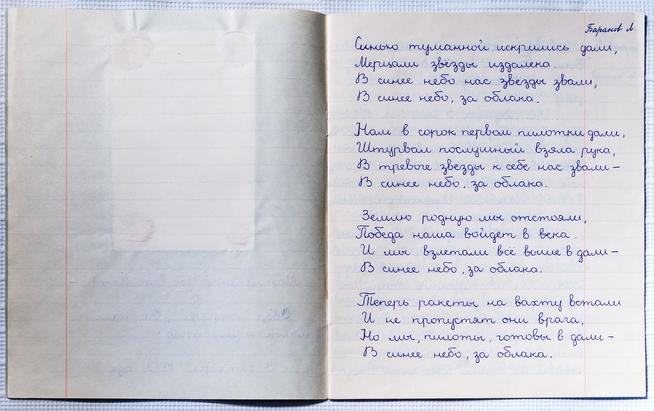 Баранов Л.
Синью туманной искрились дали,
Мерцали звёзды издалека.
В синее небо нас звёзды звали,
В синее небо, за облака.
Нам в сорок первом пилотки дали,
Штурвал послушный взяла рука,
В тревоге звёзды к себе нас звали –
В синее небо, за облака.
Землю родную мы отстояли,
Победа наша войдет в века.
И мы взлетали всё выше в дали –
В синее небо, за облака.
Теперь ракеты на вахту встали
И не пропустят они врага,
Но мы, пилоты, готовы в дали –
В синее небо, за облака.